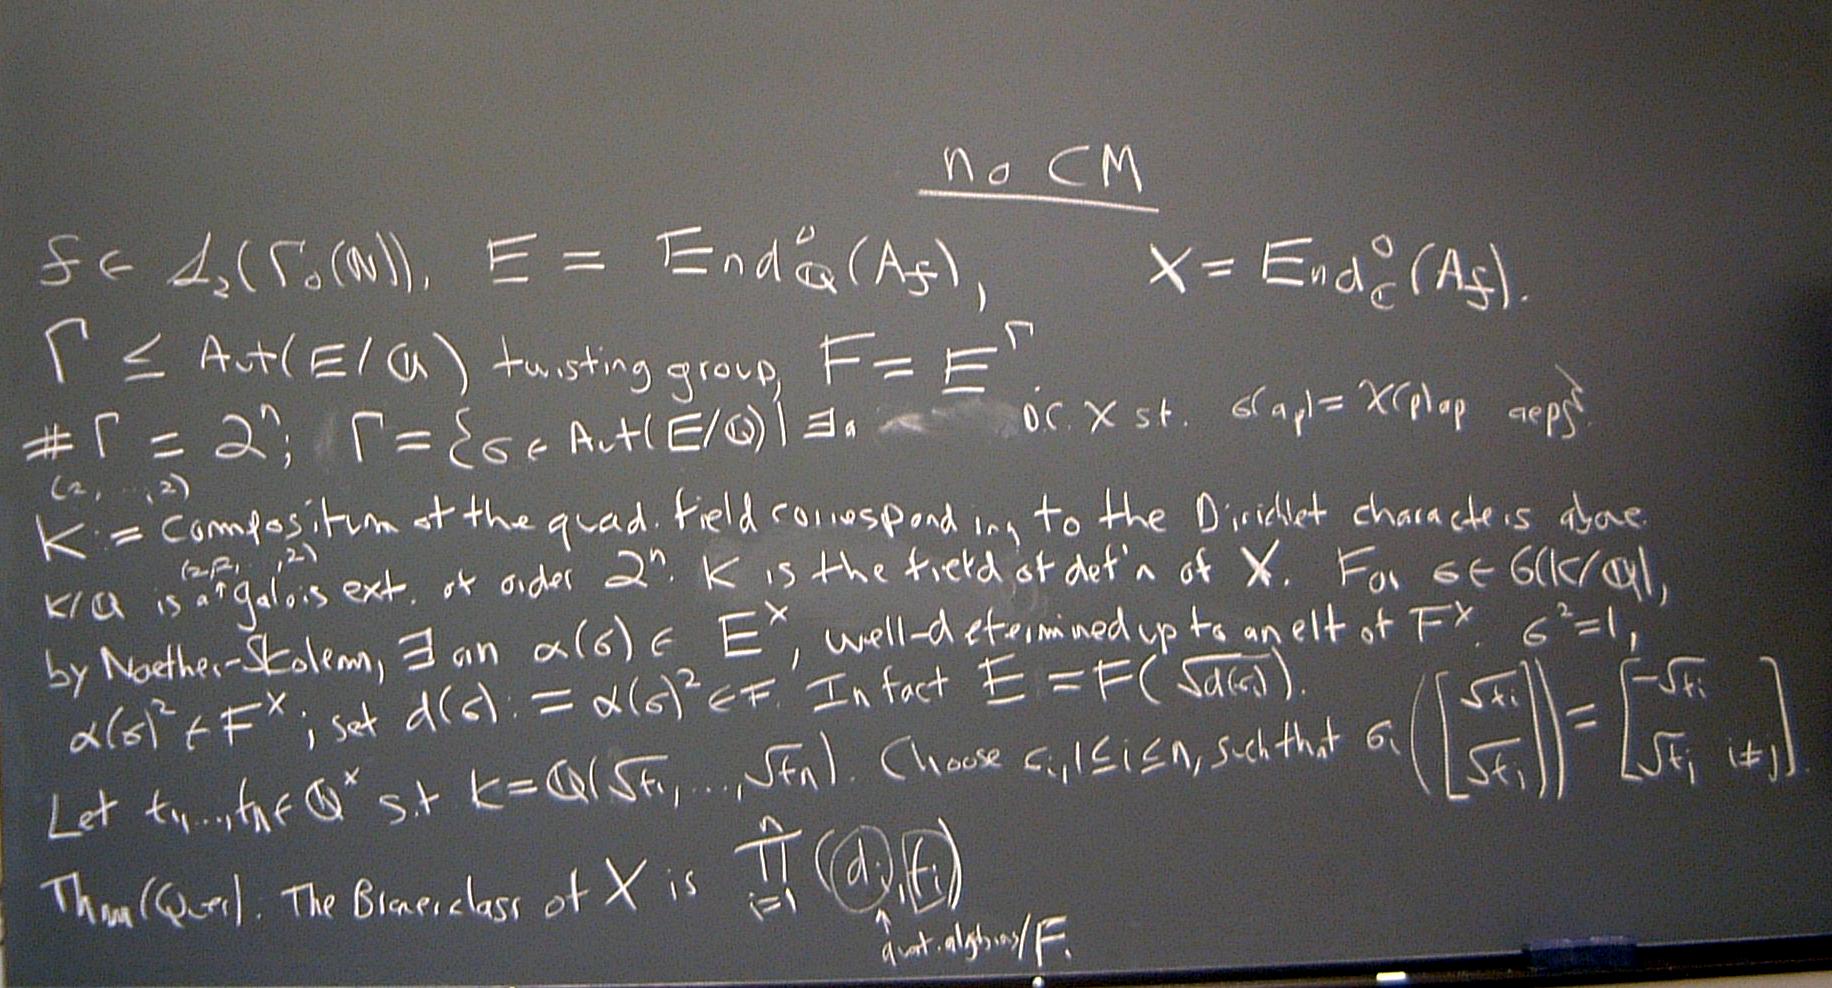 no CM
f ∈ S₂(Γ₀(N)), E = End⁰_Q(A_f), X = End⁰_C(A_f).
Γ ≤ Aut(E/Q) twisting group, F = E^Γ
#Γ = 2ⁿ; Γ = {σ ∈ Aut(E/Q) | ∃ a D.C. χ st. σ(a_p) = χ(p)a_p aeps}.
(2, ..., 2)
K := Compositum of the quad. field corresponding to the Dirichlet characters above
(2,2, ..., 2)
K/Q is a ↑ galois ext. of order 2ⁿ. K is the field of def'n of X. For σ ∈ G(K/Q),
by Noether-Skolem, ∃ an α(σ) ∈ E^×, well-determined up to an elt of F^×. σ² = 1,
α(σ)² ∈ F^×; set d(σ) := α(σ)² ∈ F. In fact E = F(√d(σ)).
Let t₁, ..., tₙ ∈ Q^× s.t K = Q(√t₁, ..., √tₙ). Choose σᵢ, 1 ≤ i ≤ n, such that σᵢ([√tᵢ √tⱼ]) = [-√tᵢ √tⱼ i≠j].
Thm (Quer). The Brauer class of X is ∏ᵢ₌₁ⁿ (dᵢ, tᵢ)
↑
quat. algebras/F.